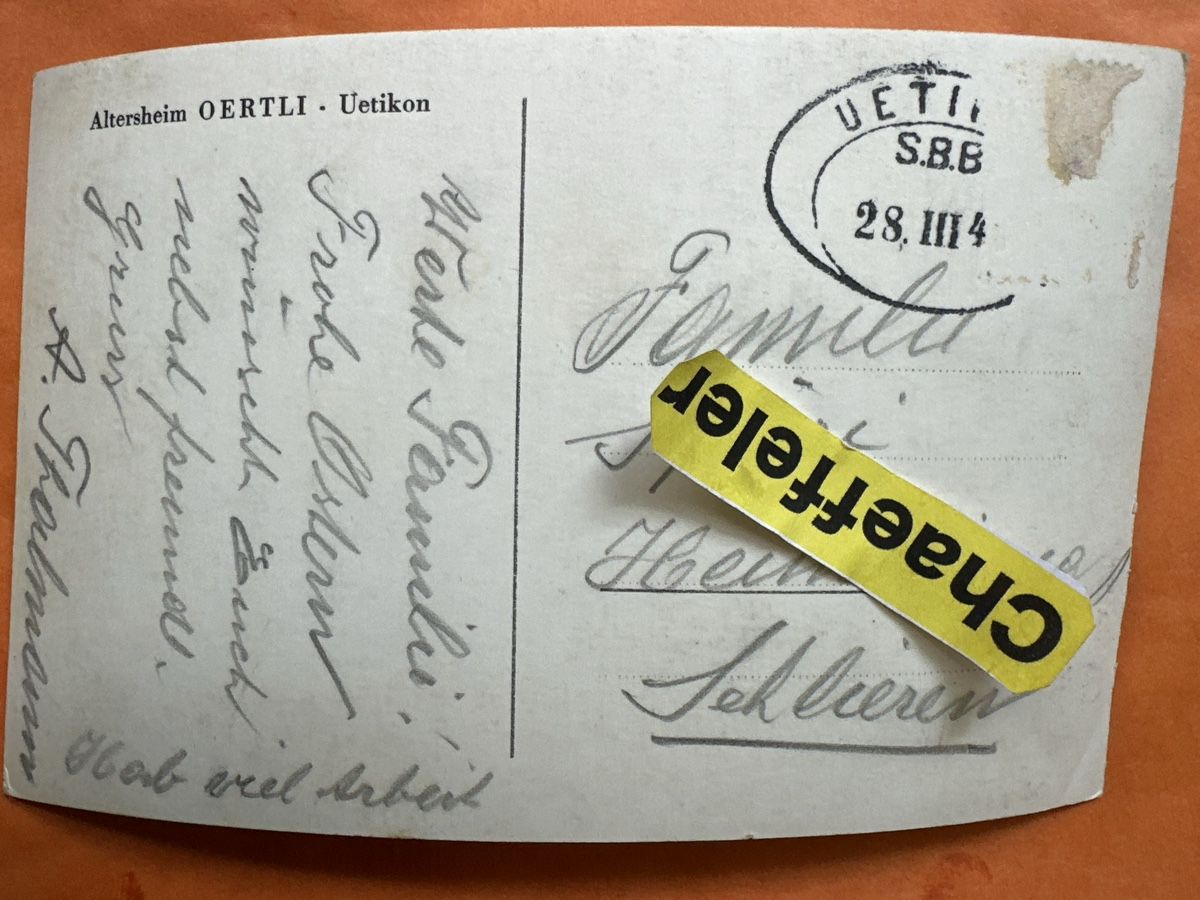 Altersheim OERTLI · Uetikon
Werte Familie!
Frohe Ostern
wünscht Euch
nebst freundl.
Gruss
A. Thalmann
Hab viel Arbeit
UETI
S.B.B
28. III 4
Familie
Chaeffeler
Schlieren